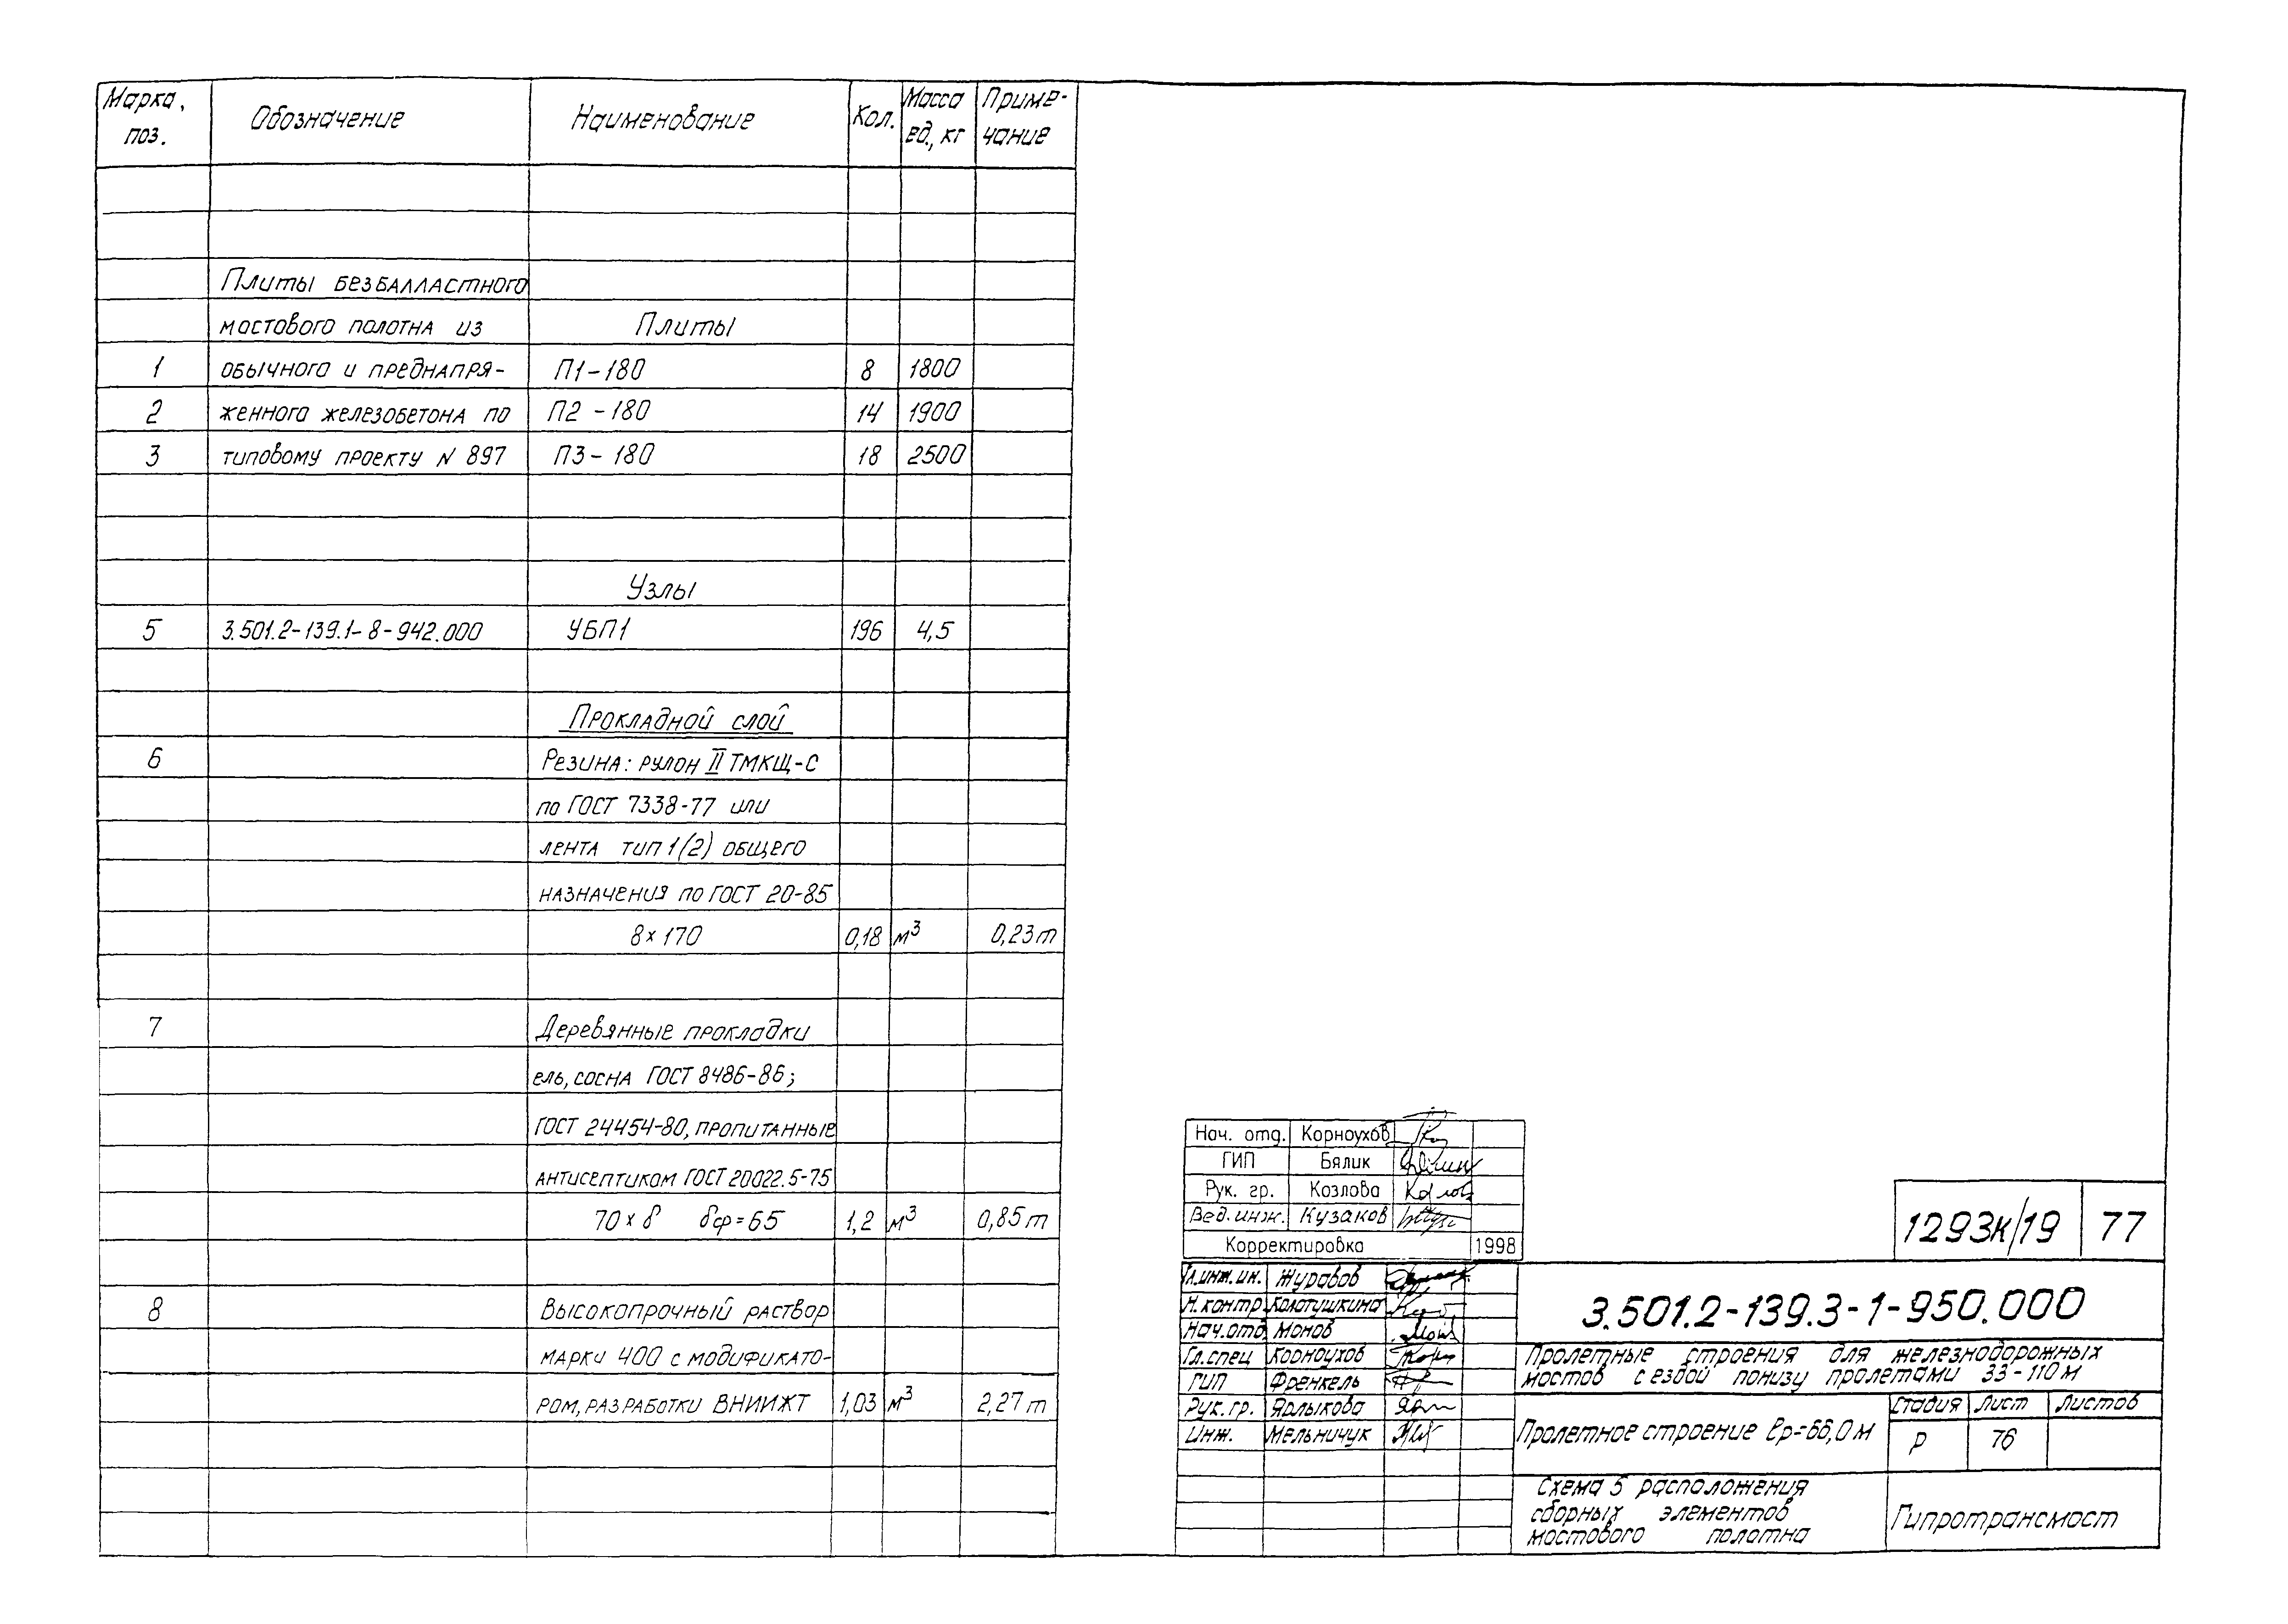 Марка, поз. Обозначение Наименование Кол. Масса ед., кг Приме-чание
Плиты безбалластного
мостового полотна из Плиты
1 обычного и преднапря- П1-180 8 1800
2 женного железобетона по П2-180 14 1900
3 типовому проекту N 897 П3-180 18 2500
Узлы
5 3.501.2-139.1-8-942.000 УБП1 196 4,5
Прокладной слой
6 Резина: рулон II ТМКЩ-С
по ГОСТ 7338-77 или
лента тип 1(2) общего
назначения по ГОСТ 20-85
8×170 0,18 м³ 0,23т
7 Деревянные прокладки
ель, сосна ГОСТ 8486-86;
ГОСТ 24454-80, пропитанные
антисептиком ГОСТ 20022.5-75
70×δ δср=65 1,2 м³ 0,85т
8 Высокопрочный раствор
марки 400 с модификато-
ром, разработки ВНИИЖТ 1,03 м³ 2,27т
Нач. отд. Корноухов
ГИП Бялик
Рук. гр. Козлова
Вед. инж. Кузаков
Корректировка 1998
Гл.инж.ин. Журавов
Н.контр. Колотушкина
Нач.отд Монов
Гл.спец Корноухов
ГИП Френкель
Рук.гр. Ярлыкова
Инж. Мельничук
1293к/19 77
3.501.2-139.3-1-950.000
Пролетные строения для железнодорожных
мостов с ездой понизу пролетами 33-110м
Пролетное строение ℓр=66,0м
Стадия Лист Листов
Р 76
Схема 5 расположения
сборных элементов
мостового полотна
Гипротрансмост